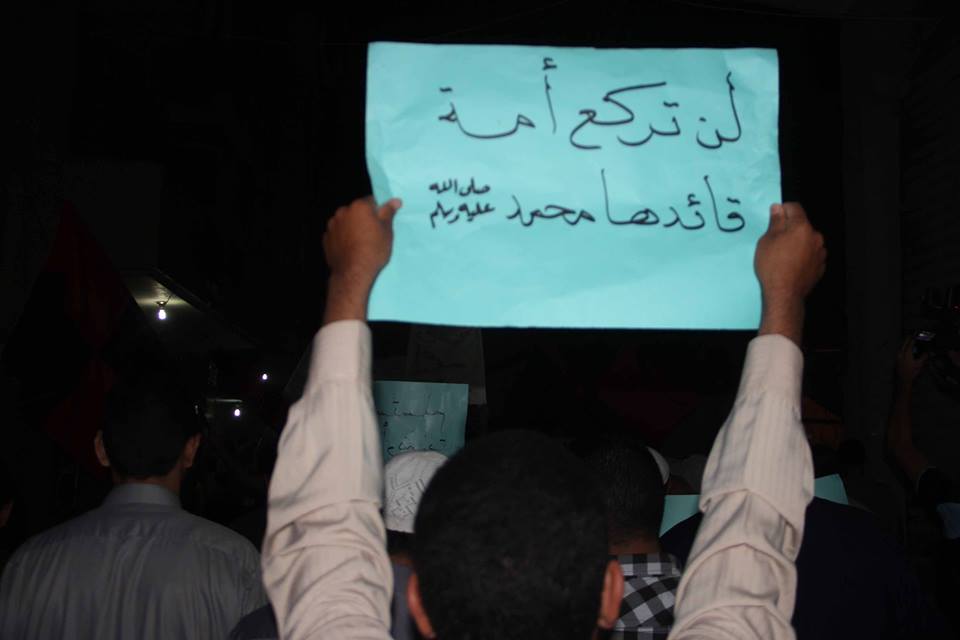 لن تركع أمة
قائدها محمد صلى الله عليه وسلم